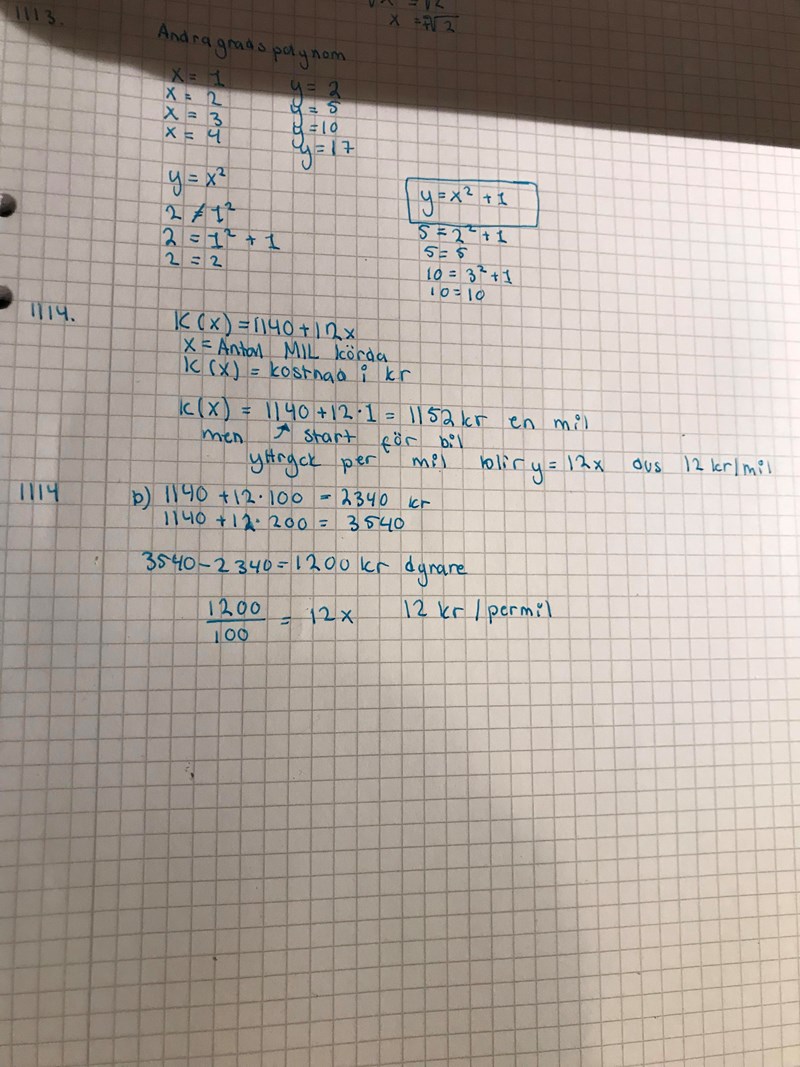 1113.
x = √2
Andragradspolynom
x = 1 y = 2
x = 2 y = 5
x = 3 y = 10
x = 4 y = 17
y = x²
2 ≠ 1²
2 = 1² + 1
2 = 2
y = x² + 1
5 = 2² + 1
5 = 5
10 = 3² + 1
10 = 10
1114.
K(x) = 1140 + 12x
x = Antal MIL körda
K(x) = kostnad i kr
K(x) = 1140 + 12 · 1 = 1152 kr en mil
men ↗ start för bil
yttryck per mil blir y = 12x dvs 12 kr/mil
1114 b) 1140 + 12 · 100 = 2340 kr
1140 + 12 · 200 = 3540
3540 - 2340 = 1200 kr dyrare
1200/100 = 12x 12 kr/permil